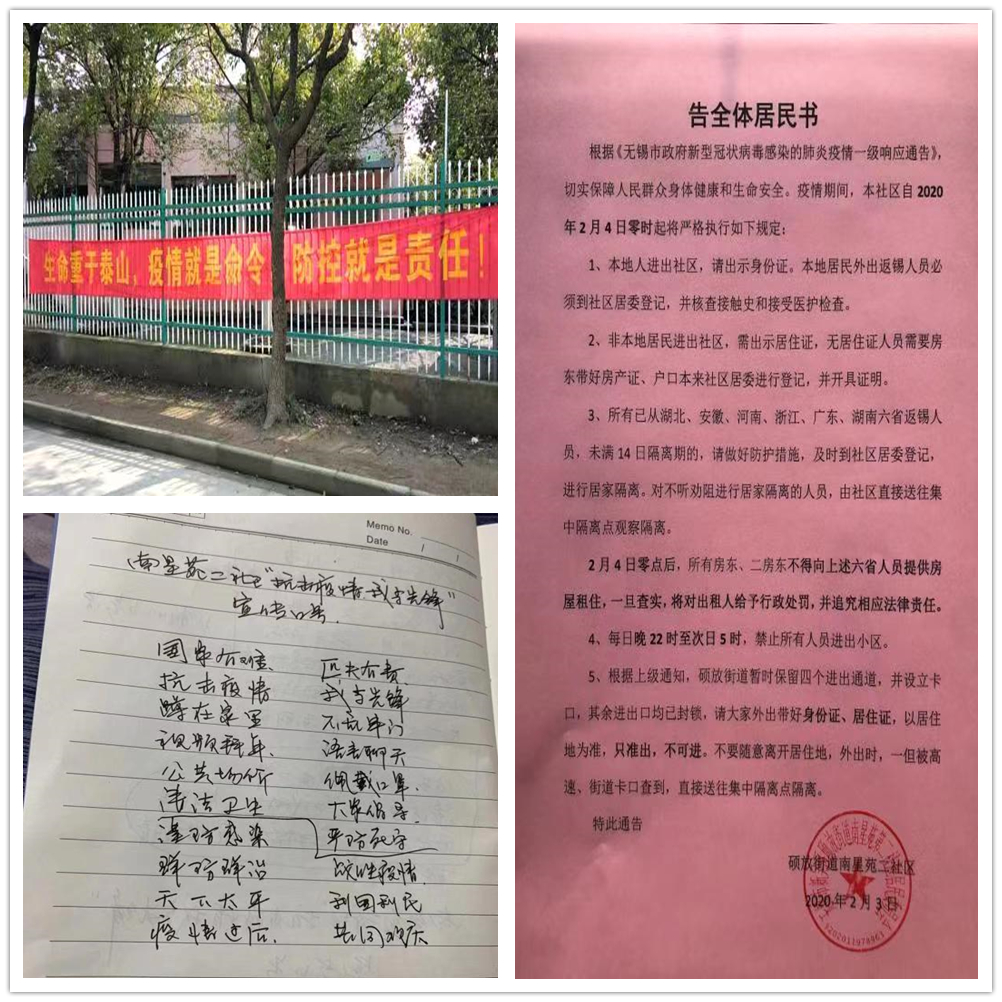 生命重于泰山，疫情就是命令 防控就是责任！
告全体居民书
根据《无锡市政府新型冠状病毒感染的肺炎疫情一级响应通告》，
切实保障人民群众身体健康和生命安全。疫情期间，本社区自 2020
年 2 月 4 日零时起将严格执行如下规定：
1、本地人进出社区，请出示身份证。本地居民外出返锡人员必
须到社区居委登记，并核查接触史和接受医护检查。
2、非本地居民进出社区，需出示居住证，无居住证人员需要房
东带好房产证、户口本来社区居委进行登记，并开具证明。
3、所有已从湖北、安徽、河南、浙江、广东、湖南六省返锡人
员，未满 14 日隔离期的，请做好防护措施，及时到社区居委登记，
进行居家隔离。对不听劝阻进行居家隔离的人员，由社区直接送往集
中隔离点观察隔离。
2 月 4 日零点后，所有房东、二房东不得向上述六省人员提供房
屋租住，一旦查实，将对出租人给予行政处罚，并追究相应法律责任。
4、每日晚 22 时至次日 5 时，禁止所有人员进出小区。
5、根据上级通知，硕放街道暂时保留四个进出通道，并设立卡
口，其余进出口均已封锁，请大家外出带好身份证、居住证，以居住
地为准，只准出，不可进。不要随意离开居住地，外出时，一但被高
速、街道卡口查到，直接送往集中隔离点隔离。
特此通告
硕放街道南星苑二社区
2020 年 2 月 3 日
Memo No.
Date / /
南星苑二社区"抗击疫情 我当先锋"
宣传口号
国家有难 匹夫有责
抗击疫情 我当先锋
蹲在家里 不宜串门
视频拜年 语音聊天
公共场所 佩戴口罩
卫生 大家倡导
谨防感染 严防死守
群防群治 疫情
天下太平 利国利民
疫情过后 共同欢庆